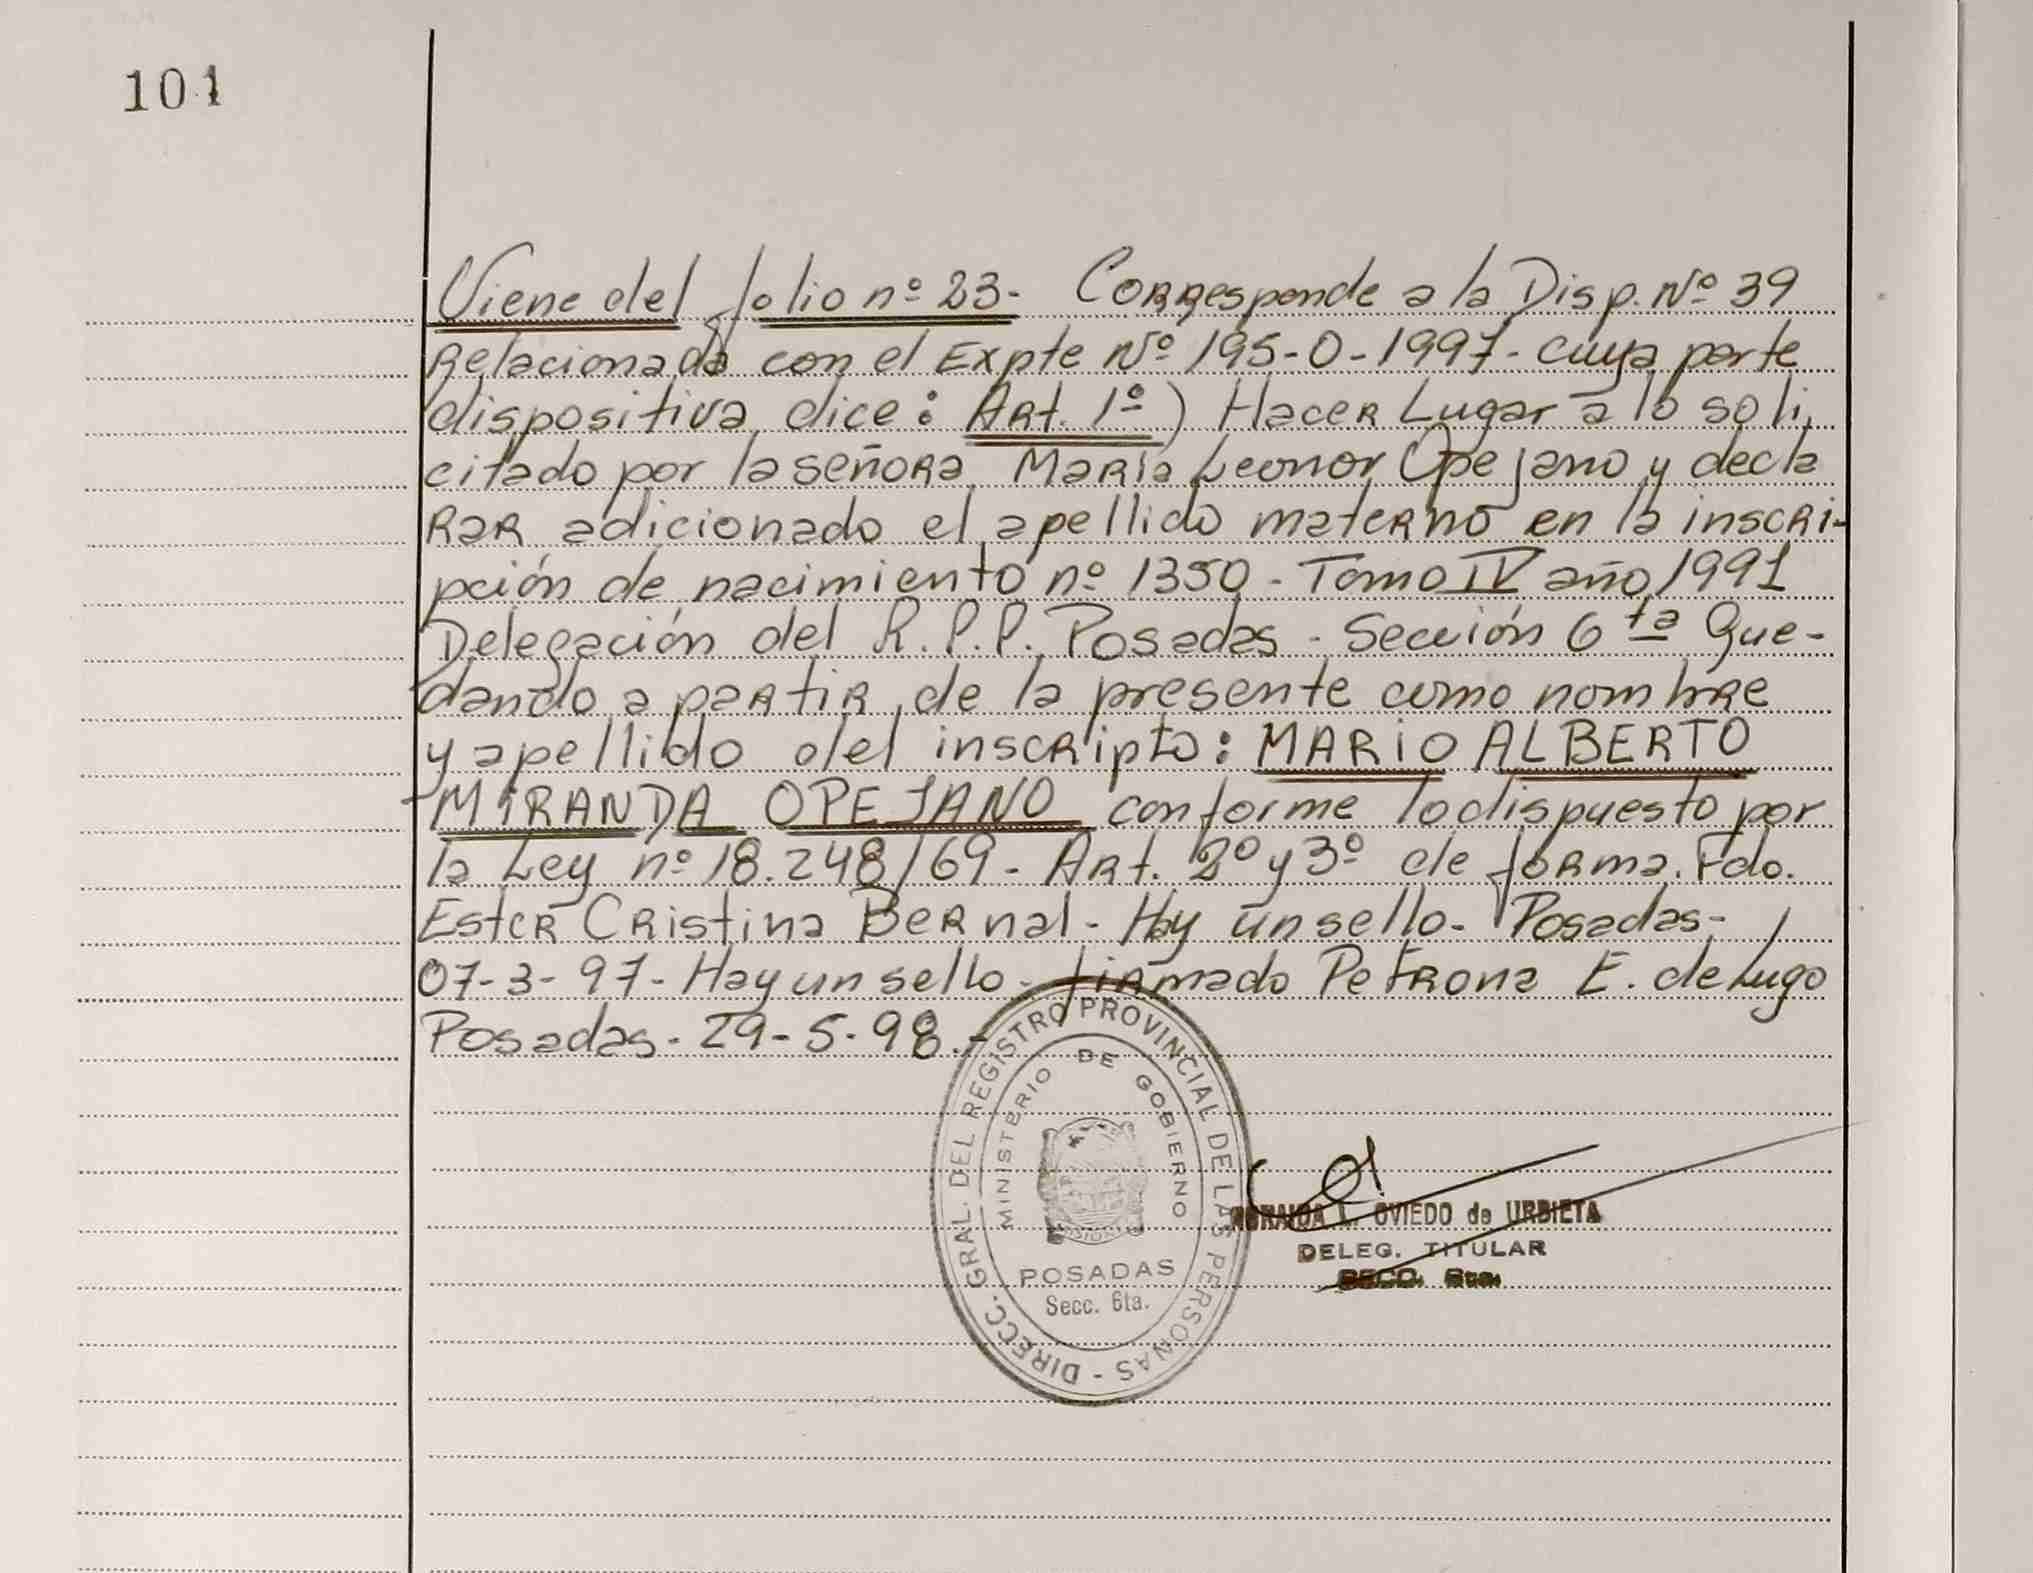 101
Viene del folio nº 23- Corresponde a la Disp. Nº 39
Relacionada con el Expte Nº 195-0-1997- cuya parte
dispositiva dice: Art. 1º) Hacer Lugar a lo soli
citado por la señora Maria Leonor Opejano y decla
rar adicionado el apellido materno en la inscri-
pción de nacimiento nº 1350 - Tomo IV año 1991
Delegación del R.P.P. Posadas - Sección 6ta Que-
dando a partir de la presente como nombre
y apellido del inscripto: MARIO ALBERTO
MIRANDA OPEJANO conforme lo dispuesto por
la Ley nº 18.248/69- Art. 2º y 3º de forma. Fdo.
Ester Cristina Bernal - Hay un sello- Posadas-
07-3-97- Hay un sello- firmado Petrona E. de Lugo
Posadas- 29-5-98.-
DIRECC. GRAL. DEL REGISTRO PROVINCIAL DE LAS PERSONAS -
MINISTERIO DE GOBIERNO
MISIONES
POSADAS
Secc. 6ta.
L. OVIEDO de URBIETA
DELEG. TITULAR
SECC. 6ta.